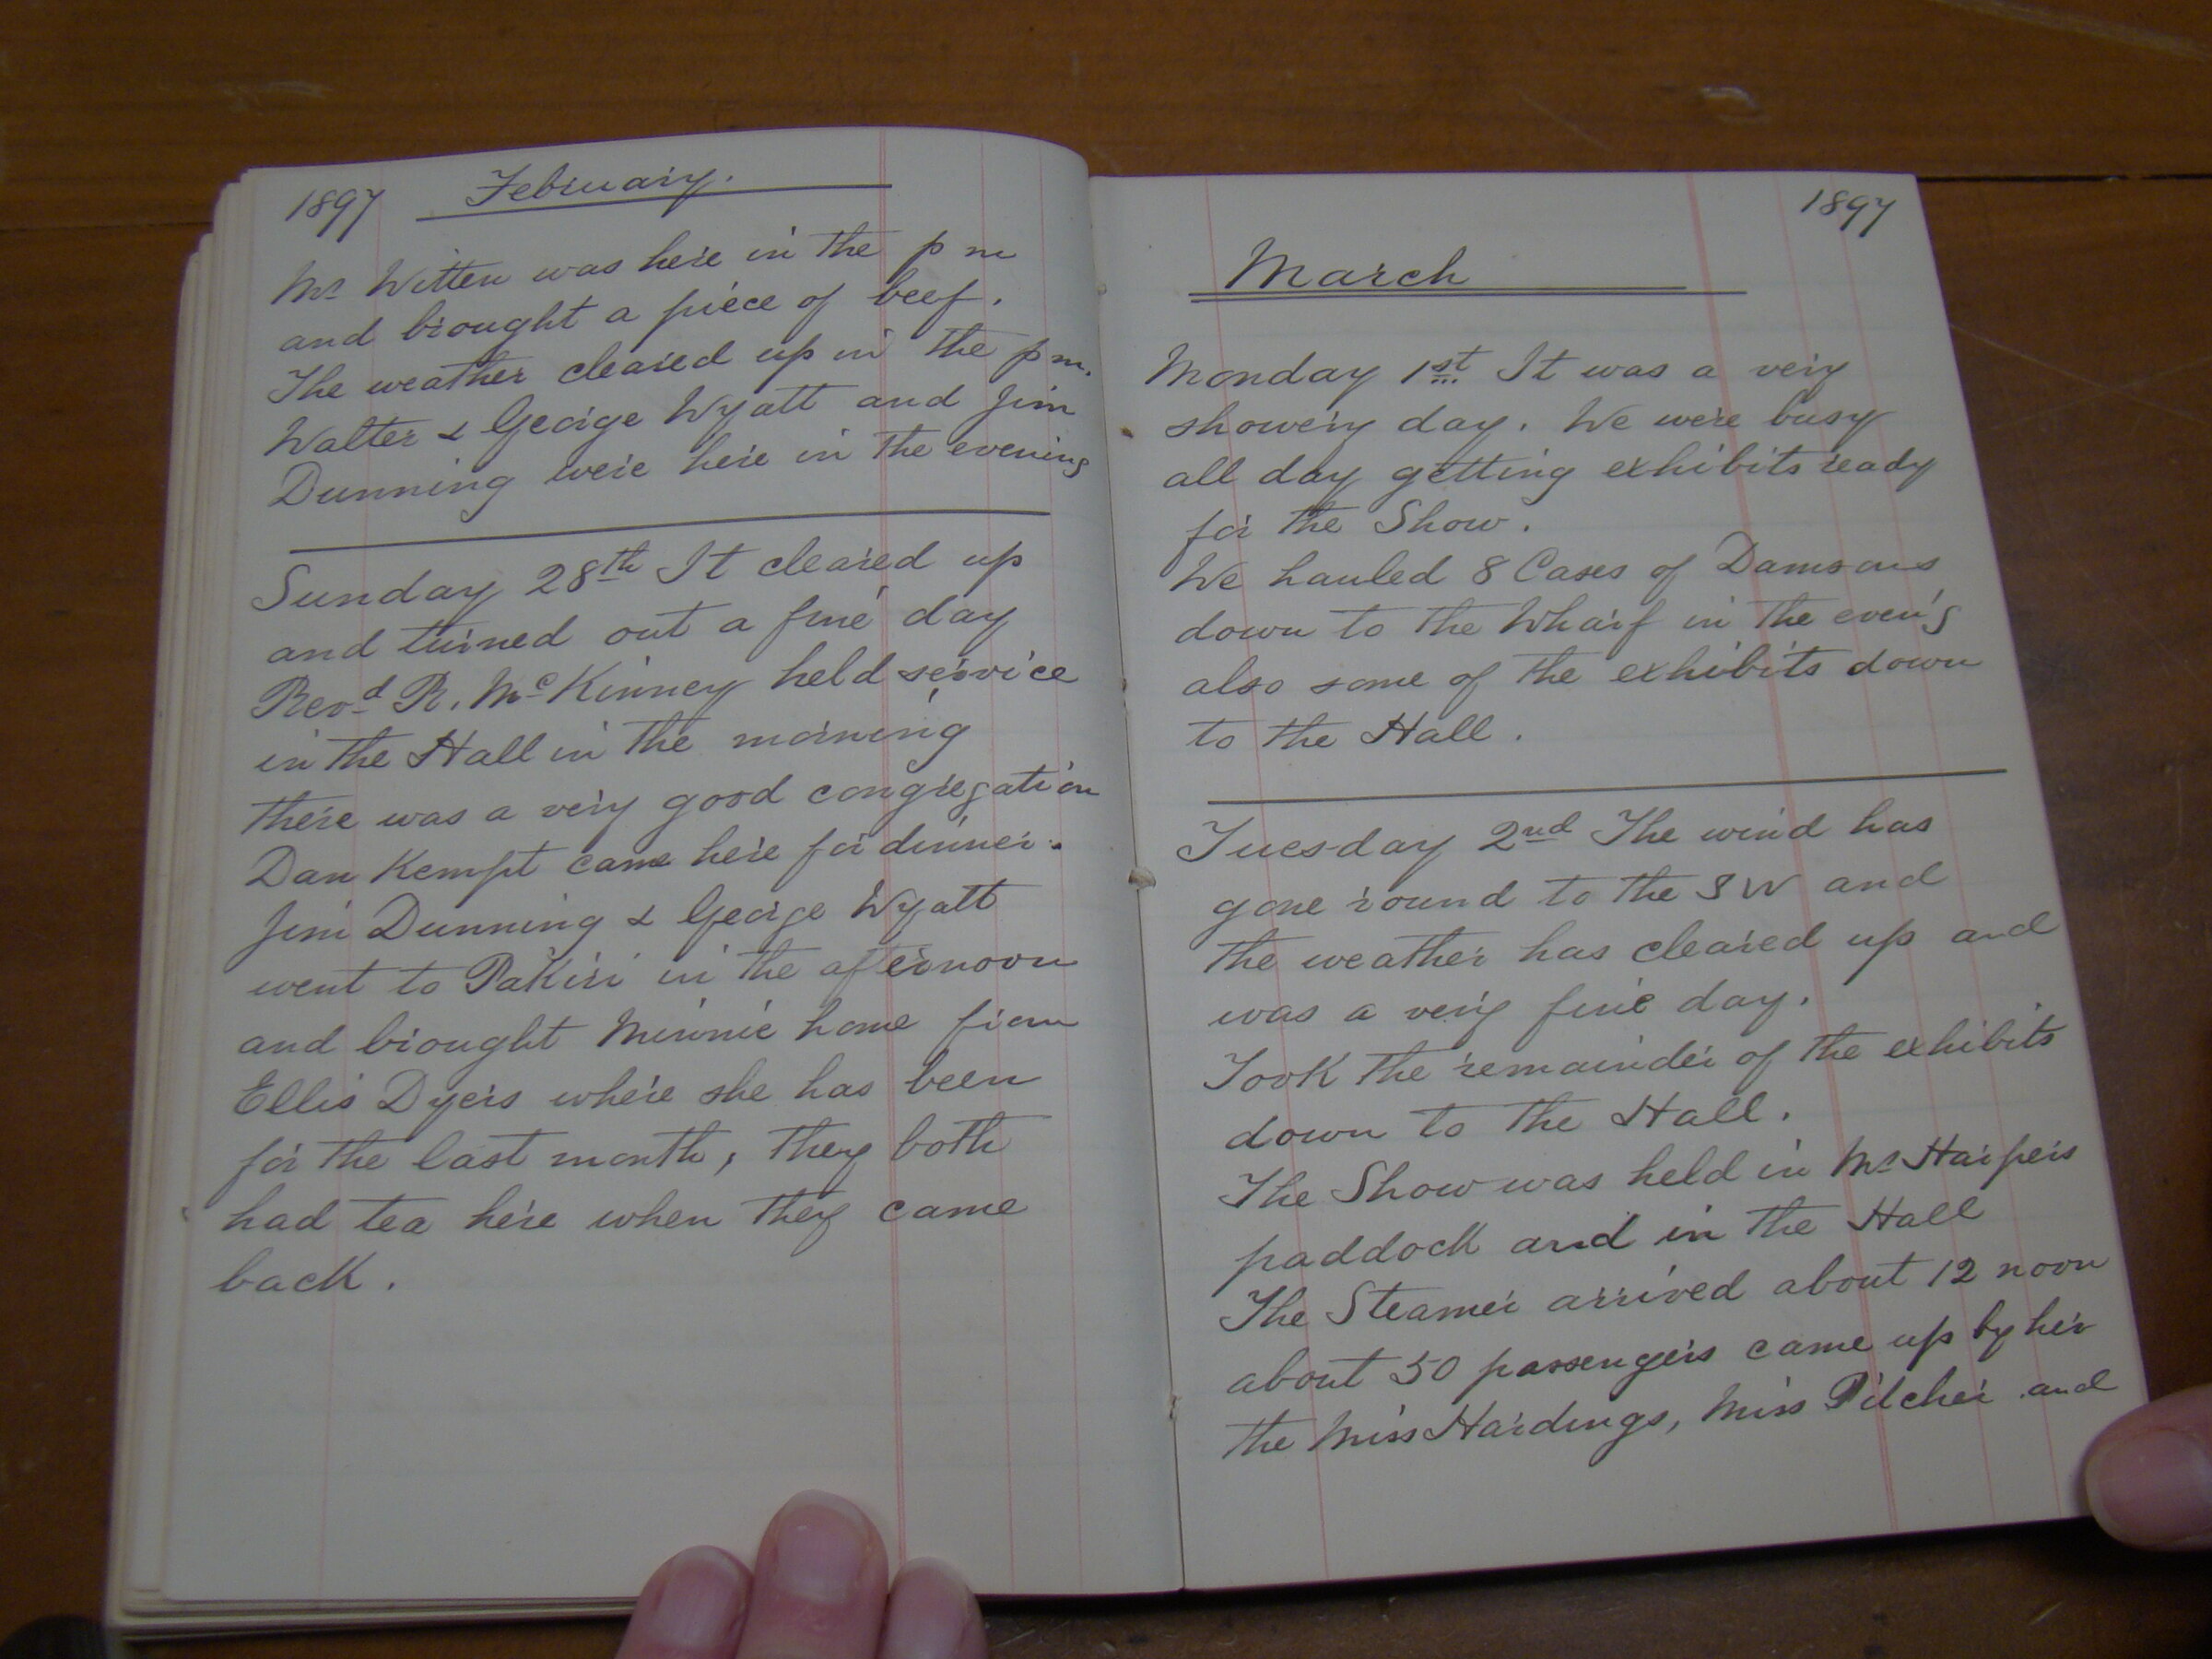 1897 February.
Mr Witten was here in the p m
and brought a piece of beef.
The weather cleared up in the p m.
Walter & George Wyatt and Jim
Dunning were here in the evening
Sunday 28th It cleared up
and turned out a fine day
Revd R. McKinney held service
in the Hall in the morning
there was a very good congregation
Dan Kempt came here for dinner.
Jim Dunning & George Wyatt
went to Pakiri in the afternoon
and brought Minnie home from
Ellis Dyers where she has been
for the last month, they both
had tea here when they came
back.
1897
March
Monday 1st It was a very
showery day. We were busy
all day getting exhibits ready
for the Show.
We hauled 8 Cases of Damsons
down to the Wharf in the even'g
also some of the exhibits down
to the Hall.
Tuesday 2nd The wind has
gone round to the SW and
the weather has cleared up and
was a very fine day.
Took the remainder of the exhibits
down to the Hall.
The Show was held in Mr Harpers
paddock and in the Hall
The Steamer arrived about 12 noon
about 50 passengers came up by her
the Miss Hardings, Miss Pilcher and